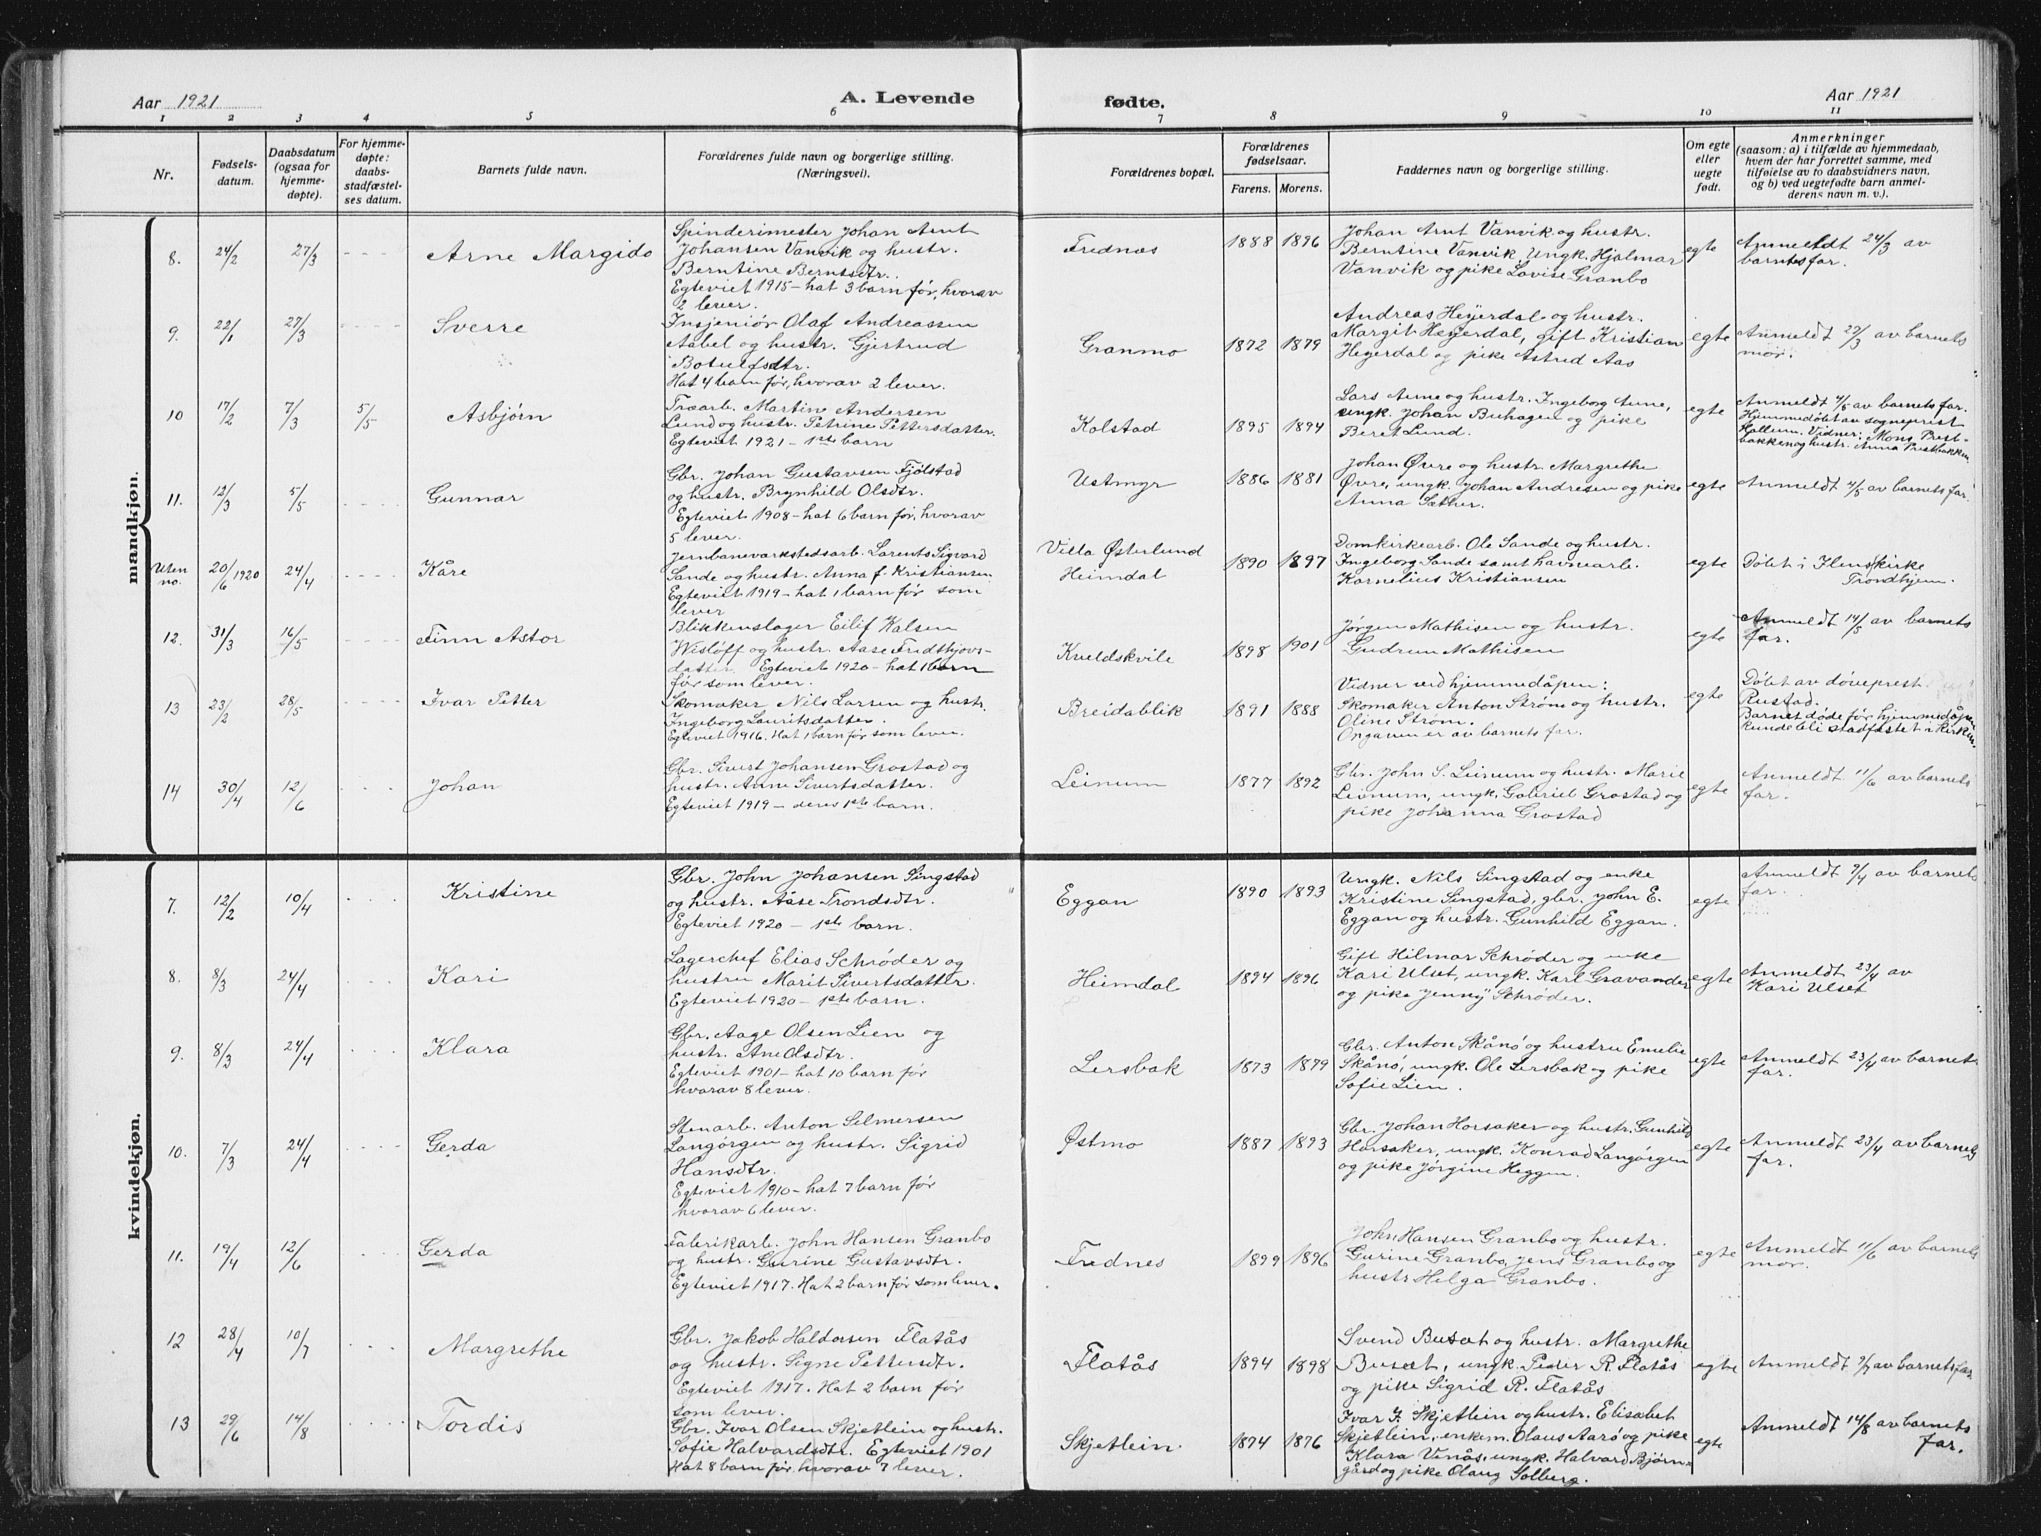 Aar 1921
A. Levende
fødte.
Aar 1921
1 2 3 4 5 6 7 8 9 10 11
Nr.
Fødsels-
datum.
Daabsdatum
(ogsaa for
hjemme-
døpte).
For hjemme-
døpte:
daabs-
stadfæstel-
ses datum.
Barnets fulde navn.
Forældrenes fulde navn og borgerlige stilling.
(Næringsvei).
Forældrenes bopæl.
Forældrenes
fødselsaar.
Farens. Morens.
Faddernes navn og borgerlige stilling.
Om egte
eller
uegte
født.
Anmerkninger
(saasom: a) i tilfælde av hjemmedaab,
hvem der har forrettet samme, med
tilføielse av to daabsvidners navn,
og b) ved uegtefødte barn anmel-
derens navn m. v.).
mandkjøn.
8. 24/2 27/3 Arne Margido
Spinderimester Johan Arnt
Johansen Vanvik og hustr.
Berntine Berntsdtr.
Egteviet 1915 - hat 3 barn før, hvorav
2 lever.
Frednæs 1888 1896
Johan Arnt Vanvik og hustr.
Berntine Vanvik, Ungk. Hjalmar
Vanvik og pike Lovise Granbo
egte
Anmeldt 24/3 av
barnets far.
9. 22/1 27/3 Sverre
Insjeniør Olaf Andreassen
Aabel og hustr. Gjertrud
Botulfsdtr.
Hat 4 barn før, hvorav 2 lever.
Granmo 1872 1879
Andreas Heyerdal og hustr.
Margit Heyerdal, gift Kristian
Heyerdal og pike Astrid Aas
egte
Anmeldt 22/3 av barnets
mor.
10 17/2 7/3 5/5 Asbjørn
Træarb. Martin Andersen
Lund og hustr. Petrine Pettersdatter.
Egteviet 1921 - 1ste barn
Kolstad 1895 1894
Lars Aune og hustr. Ingeborg Aune,
ungk. Johan Buhagen og pike
Beret Lund.
egte
Anmeldt 4/5 av barnets far.
Hjemmedøbt av sogneprest
Hallem. Vidner: Mons Prest-
bakken og hustr. Anna Prestbakken
11. 12/3 5/5 Gunnar
Gbr. Johan Gustavsen Fjølstad
og hustr. Brynhild Olsdtr.
Egteviet 1908 - hat 6 barn før, hvorav
5 lever.
Ustmyr 1886 1881
Johan Øvre og hustr. Margrethe
Øvre, ungk. Johan Andresen og pike
Anna Sæther.
egte
Anmeldt 4/5 av barnets far.
Uten
no. 20/6 1920 24/4 Kåre
Jernbaneverkstedsarb. Larents Sigvard
Sande og hustr. Anna f. Kristiansen.
Egteviet 1919 - hat 1 barn før som
lever
Villa Østerlund
Heimdal 1890 1897
Domkirkearb. Ole Sande og hustr.
Ingeborg Sande samt havnearb.
Kornelius Kristiansen
egte
Døbt i Ilens kirke
Trondhjem.
12. 31/3 16/5 Finn Astor
Blikkenslager Eilif Kalsen
Wisløff og hustr. Aase Fridthjovs-
datter. Egteviet 1920 - hat 1 barn
før som lever.
Kveldskvile 1898 1901
Jørgen Mathisen og hustr.
Gudrun Mathisen
egte
Anmeldt 14/5 av barnets
far.
13 23/2 28/5 Ivar Petter
Skomaker Nils Larsen og hustr.
Ingeborg Lauritsdatter.
Egteviet 1916. Hat 1 barn før som lever.
Breidablik 1891 1888
Vidner ved hjemmedåpen:
Skomaker Anton Strøm og hustr.
Oline Strøm.
Opgaven er av barnets far.
egte
Døbt av døveprest
Rustad.
Barnet døde før hjemmedåpen
kunde bli stadfæstet i kirken.
14 30/4 12/6 Johan
Gbr. Sivert Johansen Grostad og
hustr. Anne Sivertsdatter.
Egteviet 1919 - deres 1ste barn.
Leinum 1877 1892
Gbr. John S. Leinum og hustr. Marie
Leinum, ungk. Gabriel Grostad og
pike Johanna Grostad
egte
Anmeldt 11/6 av barnets
far.
kvindekjøn.
7. 12/2 10/4 Kristine
Gbr. John Johansen Singstad
og hustr. Aase Trondsdtr.
Egteviet 1920 - 1ste barn.
Eggan 1890 1893
Ungk. Nils Singstad og enke
Kristine Singstad, gbr. John E.
Eggan og hustr. Gunhild Eggan.
egte
Anmeldt 9/4 av barnets
far.
8. 8/3 24/4 Kari
Lagerchef Elias Schrøder og
hustru Marit Sivertsdatter.
Egteviet 1920 - 1ste barn.
Heimdal 1894 1896
Gift Hilmar Schrøder og enke
Kari Ulset, ungk. Karl Gravander
og pike Jenny Schrøder.
egte
Anmeldt 23/4 av
Kari Ulset
9. 8/3 24/4 Klara
Gbr. Aage Olsen Lien og
hustr. Ane Olsdtr.
Egteviet 1901 - hat 10 barn før
hvorav 8 lever.
Lersbak 1873 1879
Gbr. Anton Skånø og hustru Emelie
Skånø, ungk. Ole Lersbak og pike
Sofie Lien.
egte
Anmeldt 23/4 av barnets
far.
10. 7/3 24/4 Gerda
Stenarb. Anton Selmersen
Langørgen og hustr. Sigrid
Hansdtr.
Egteviet 1910 - hat 7 barn før
hvorav 6 lever.
Østmo 1887 1893
Gbr. Johan Horsaker og hustr. Gunhild
Horsaker, ungk. Konrad Langørgen
og pike Jørgine Heggen.
egte
Anmeldt 23/4 av barnets
far.
11. 19/4 12/6 Gerda
Fabrikarb. John Hansen Granbo
og hustr. Gurine Gustavsdtr.
Egteviet 1917. Hat 2 barn før som lever.
Frednes 1899 1896
John Hansen Granbo og hustr.
Gurine Granbo, Jens Granbo og
hustr Helga Granbo.
egte
Anmeldt 11/6 av barnets
mor.
12 28/4 10/7 Margrethe
Gbr. Jakob Haldorsen Flatås
og hustr. Signe Pettersdtr.
Egteviet 1917. Hat 2 barn før
som lever.
Flatås 1894 1898
Svend Buset og hustr. Margrethe
Buset, ungk. Peder R. Flatås
og pike Sigrid R. Flatås
egte
Anmeldt 9/7 av barnets far
13 29/6 14/8 Tordis
Gbr. Ivar Olsen Skjetlein og hustr.
Sofie Halvardsdtr. Egteviet 1901
Hat 8 barn før, hvorav 7 lever.
Skjetlein 1874 1876
Ivar J. Skjetlein og hustr. Elisabet
Skjetlein, enkem. Olaus Aarø og pike
Klara Venås, ungk. Halvard Bjørn-
gård og pike Olaug Solberg.
egte
Anmeldt 14/8 av barnets
far.